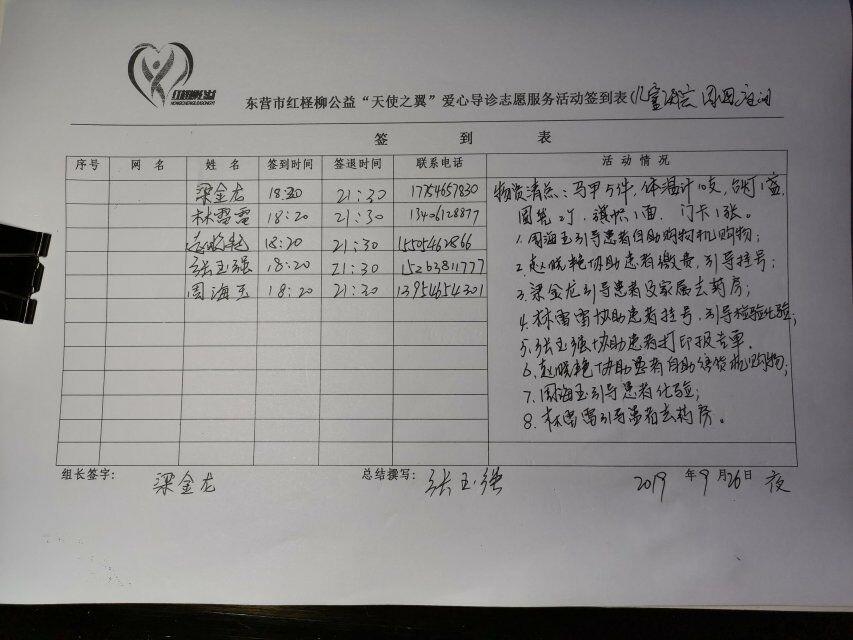 红柽柳公益
HONGCHENGLIUGONGYI
东营市红柽柳公益“天使之翼”爱心导诊志愿服务活动签到表(儿童医院 周四夜间
签 到 表
序号 网 名 姓 名 签到时间 签退时间 联系电话 活 动 情 况
梁金龙 18:20 21:30 17754657830
林雷雷 18:20 21:30 13406128877
赵晓艳 18:20 21:30 15505462866
张玉强 18:20 21:30 15263811777
周海玉 18:20 21:30 13954654301
物资清点:马甲5件,体温计10支,台灯1盏,
圆笔2个,旗帜1面,门卡1张。
1.周海玉引导患者自助购物机购物;
2.赵晓艳协助患者缴费,引导挂号;
3.梁金龙引导患者及家属去药房;
4.林雷雷协助患者挂号,引导检验化验;
5.张玉强协助患者打印报告单。
6.赵晓艳协助患者自助售货机购物;
7.周海玉引导患者化验;
8.林雷雷引导患者去药房。
组长签字: 梁金龙 总结撰写: 张玉强 2019 年 9 月 26 日 夜